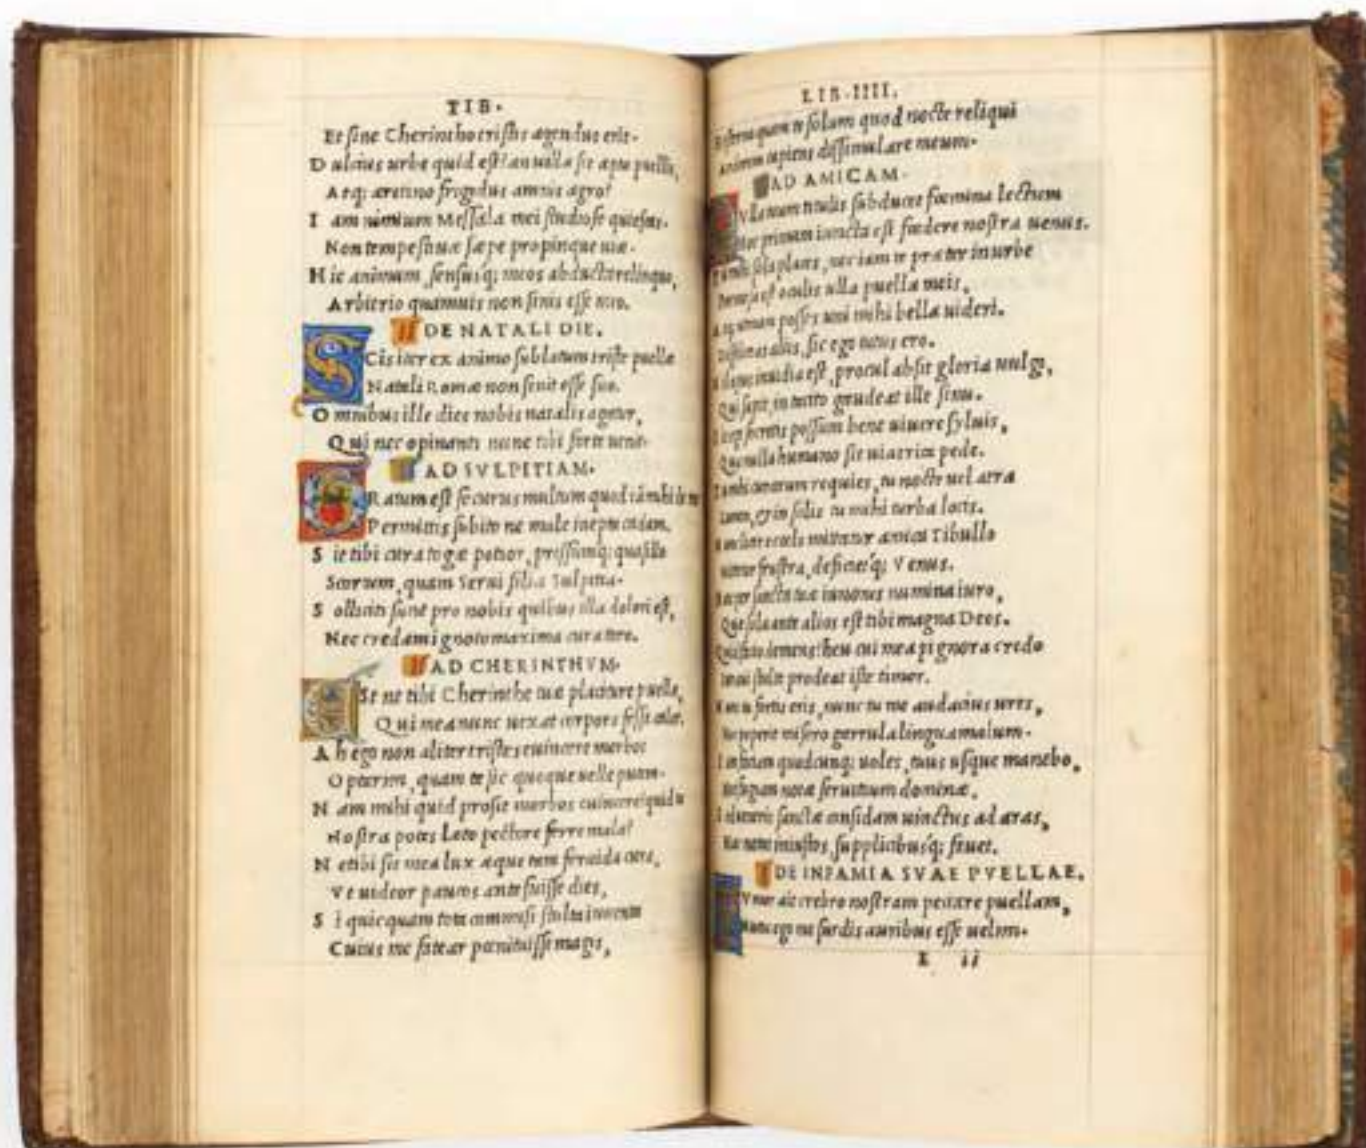 TIB.
Et sine Cherintho tristis agendus erit.
D ulcius urbe quid est? an uilla sit apta puellæ,
Atq; aretino frigidus amnis agro?
I am nimium Messala mei studiose quiescas.
Non tempestiuæ sæpe propinque uiæ.
H ic animum, sensusq; meos abducta relinquo,
Arbitrio quamuis non sinis esse meo.
DE NATALI DIE.
S Cis iter ex animo sublatum triste puellæ
Natali Romæ non sinit esse suo.
O mnibus ille dies nobis natalis agatur,
Qui nec opinanti nunc tibi forte uenit.
AD SVLPITIAM.
G Ratum est securus multum quod iā mihi de me
Permittis subito ne male inepta cadam.
S it tibi cura togæ potior, pressumq; quasillo
Scortum, quam Serui filia Sulpitia.
S olliciti sunt pro nobis quibus illa dolori est,
Nec credam ignoto maxima cura toro.
AD CHERINTHVM.
E St ne tibi Cherinthe tuæ placiture puellæ,
Qui mea nunc uexat corpora fessa calor.
A h ego non aliter tristes euincere morbos
Optarim, quam te sic quoque uelle putem.
N am mihi quid prosit morbos euincere, si quid tu
Nostra potes Læto pectore ferre mala?
N e tibi sit mea lux æque tam feruida cura,
Vt uideor paucos ante fuisse dies,
S i quicquam tota commisi stulta iuuenta
Cuius me fatear pœnituisse magis,
LIB. IIII.
Hesterna quam te solum quod nocte reliqui
Ardorem cupiens dissimulare meum.
AD AMICAM.
N Vlla tuum nobis subducet fœmina lectum
Hoc primum iuncta est fœdere nostra uenus.
T u mihi sola places, nec iam te præter in urbe
Formosa est oculis ulla puella meis.
A tq; utinam posses uni mihi bella uideri.
Displiceas aliis, sic ego tutus ero.
N il opus inuidia est, procul absit gloria uulgi,
Qui sapit, in tacito gaudeat ille sinu.
S ic ego secretis possum bene uiuere syluis,
Qua nulla humano sit uia trita pede.
T u mihi curarum requies, tu nocte uel atra
Lumen, & in solis tu mihi turba locis.
N unc licet e cælo mittatur amica Tibullo
Mittetur frustra, deficietq; Venus.
H æc per sancta tuæ iunonis numina iuro,
Quæ sola ante alios est tibi magna Deos.
Quid facio demens? heu cui mea pignora credo
Iuraui stulte proderat iste timor.
N unc tu fortis eris, nunc tu me audacius ures,
Hoc peperit misero garrula lingua malum.
I am faciam quodcunq; uoles, tuus usque manebo,
Nec fugiam notæ seruitium dominæ.
S ed ueneris sanctæ considam uinctus ad aras,
Hæc notat iniustos, supplicibusq; fauet.
DE INFAMIA SVAE PVELLAE.
R Vmor ait crebro nostram peccare puellam,
Nunc ego me surdis auribus esse uelim.
E ii